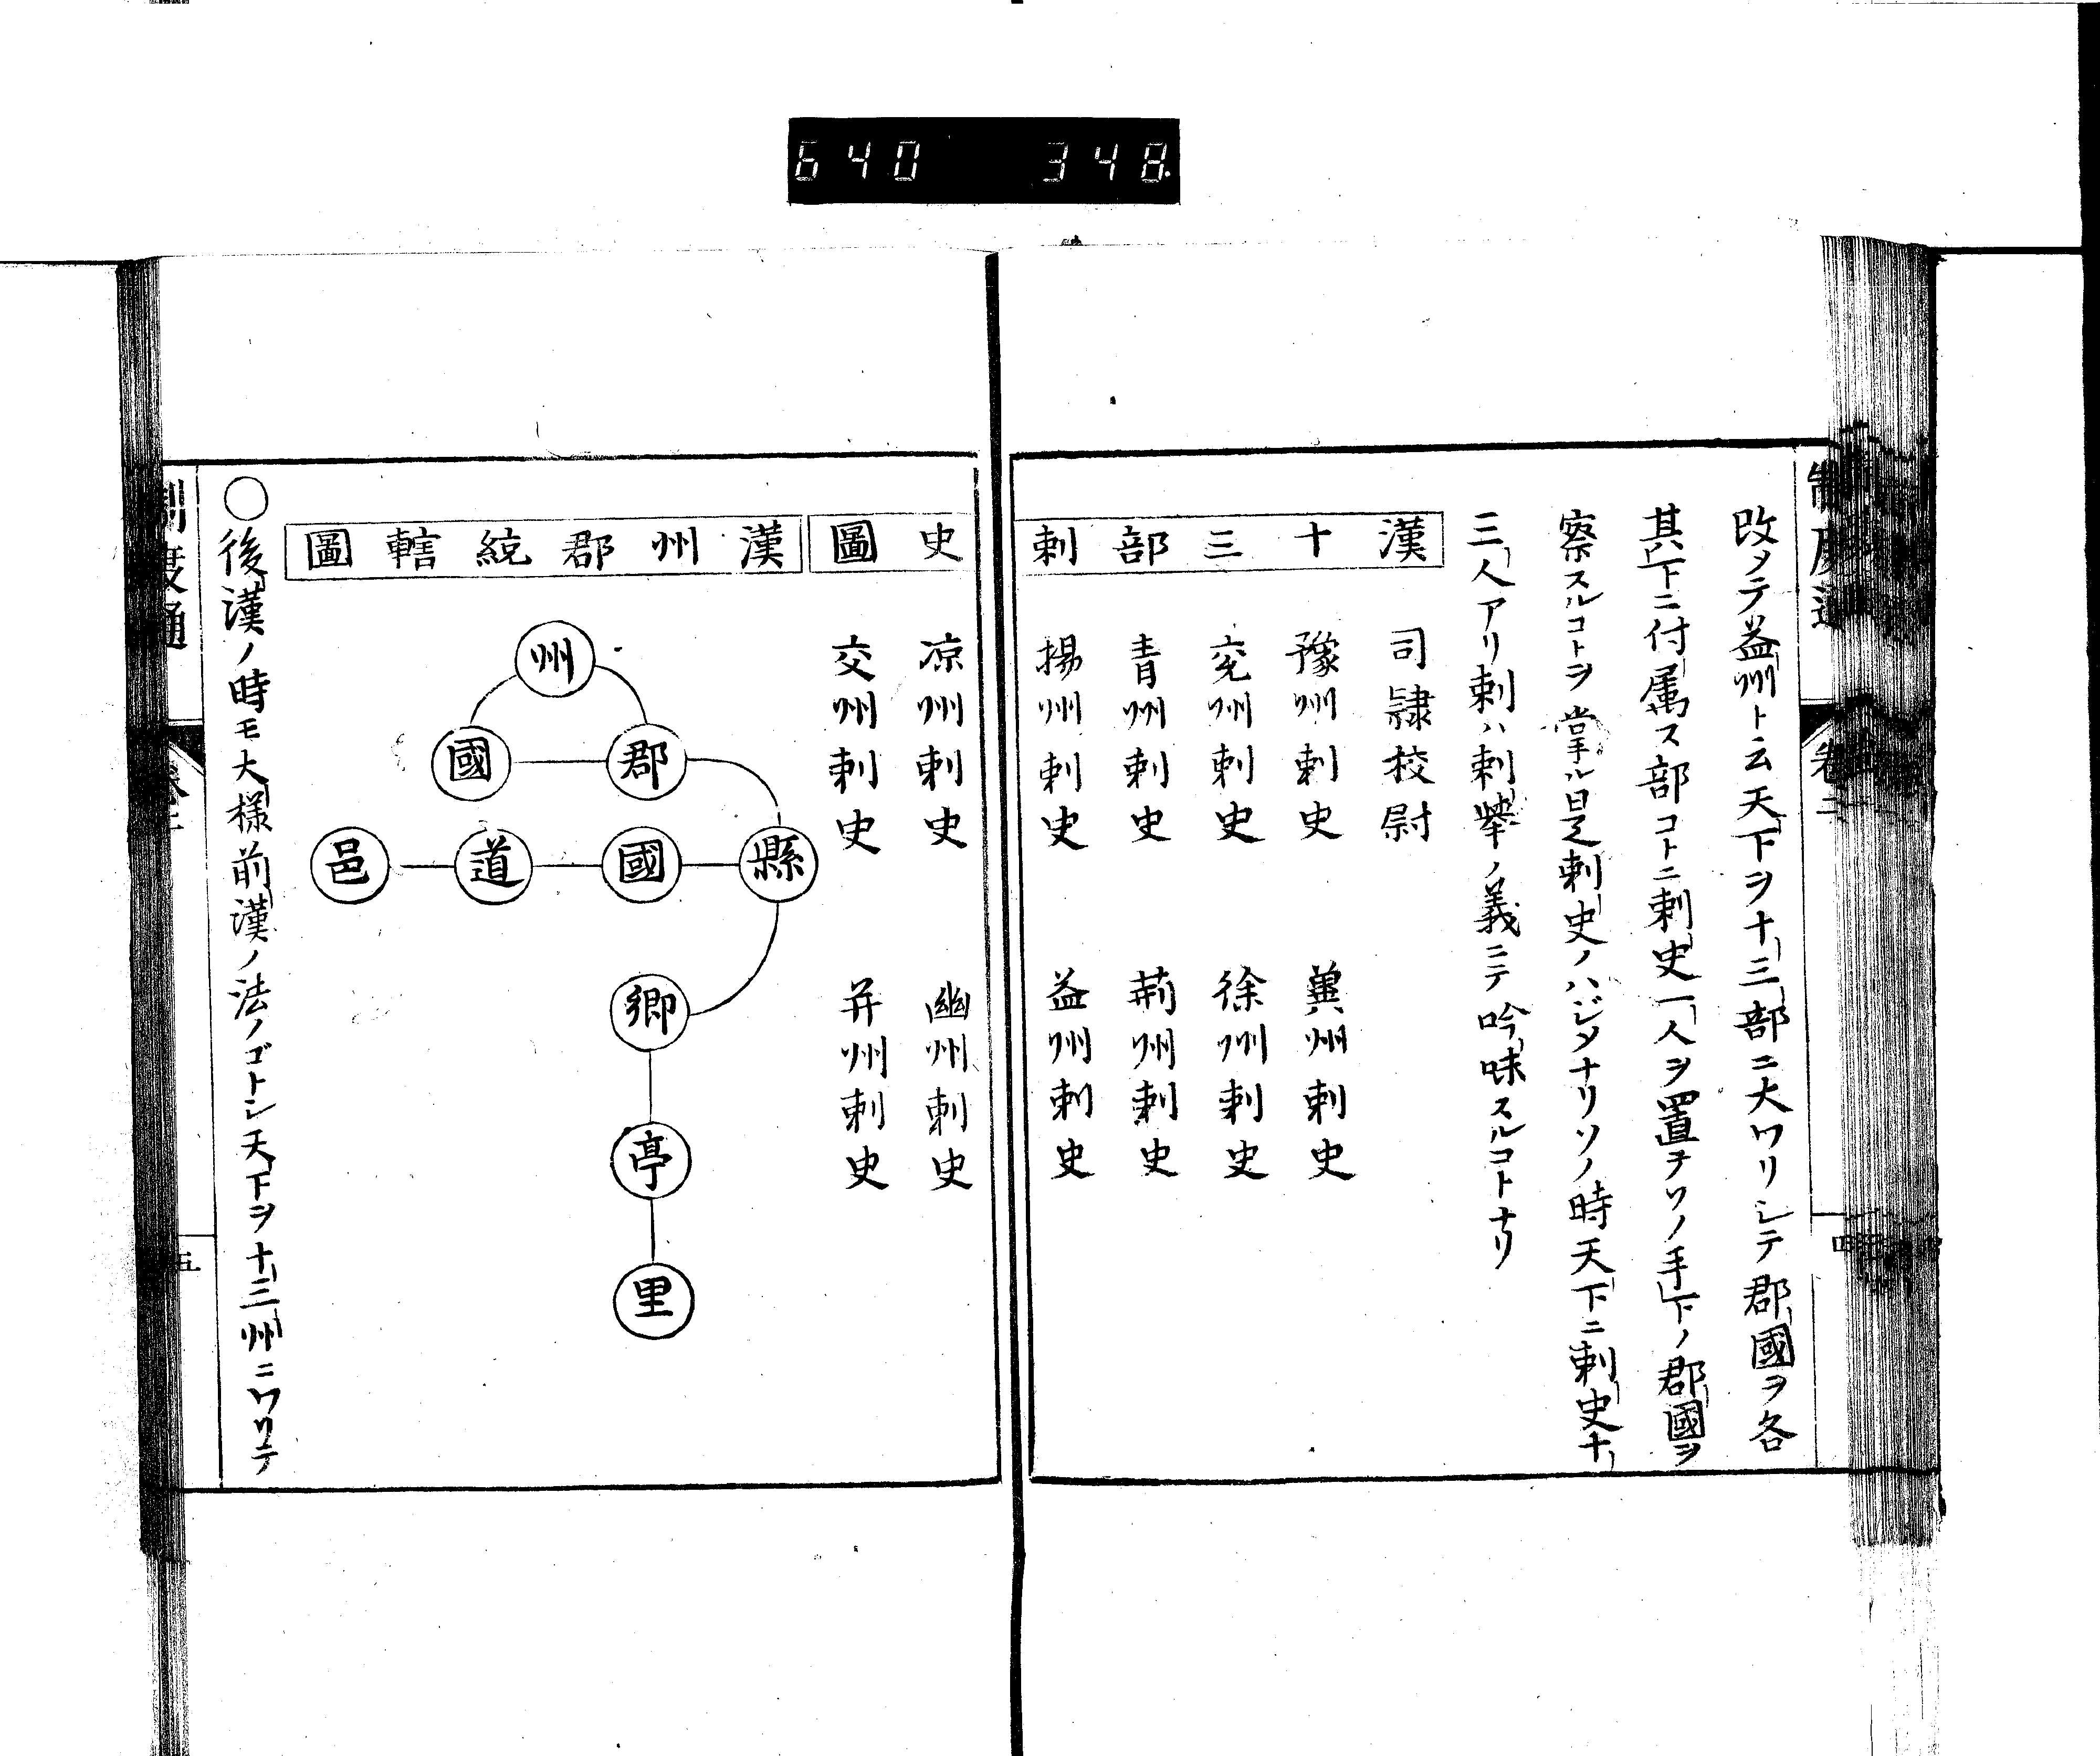 640 348
改メテ益州ト云天下ヲ十三部ニ大ワリシテ郡國ヲ各
其下ニ付属ス部コトニ刺史一人ヲ置テソノ手下ノ郡國ヲ
察スルコトヲ掌ル是刺史ノハジメナリソノ時天下ニ刺史十
三人アリ刺ハ刺擧ノ義ニテ吟味スルコトナリ
漢十三部刺
司隷校尉
豫州刺史 冀州刺史
兖州刺史 徐州刺史
青州刺史 荊州刺史
揚州刺史 益州刺史
史圖
凉州刺史 幽州刺史
交州刺史 并州刺史
漢州郡統轄圖
州
郡 國
縣 國 道 邑
鄉
亭
里
○後漢ノ時モ大樣前漢ノ法ノゴトシ天下ヲ十三州ニワリテ
制度通 卷二 五